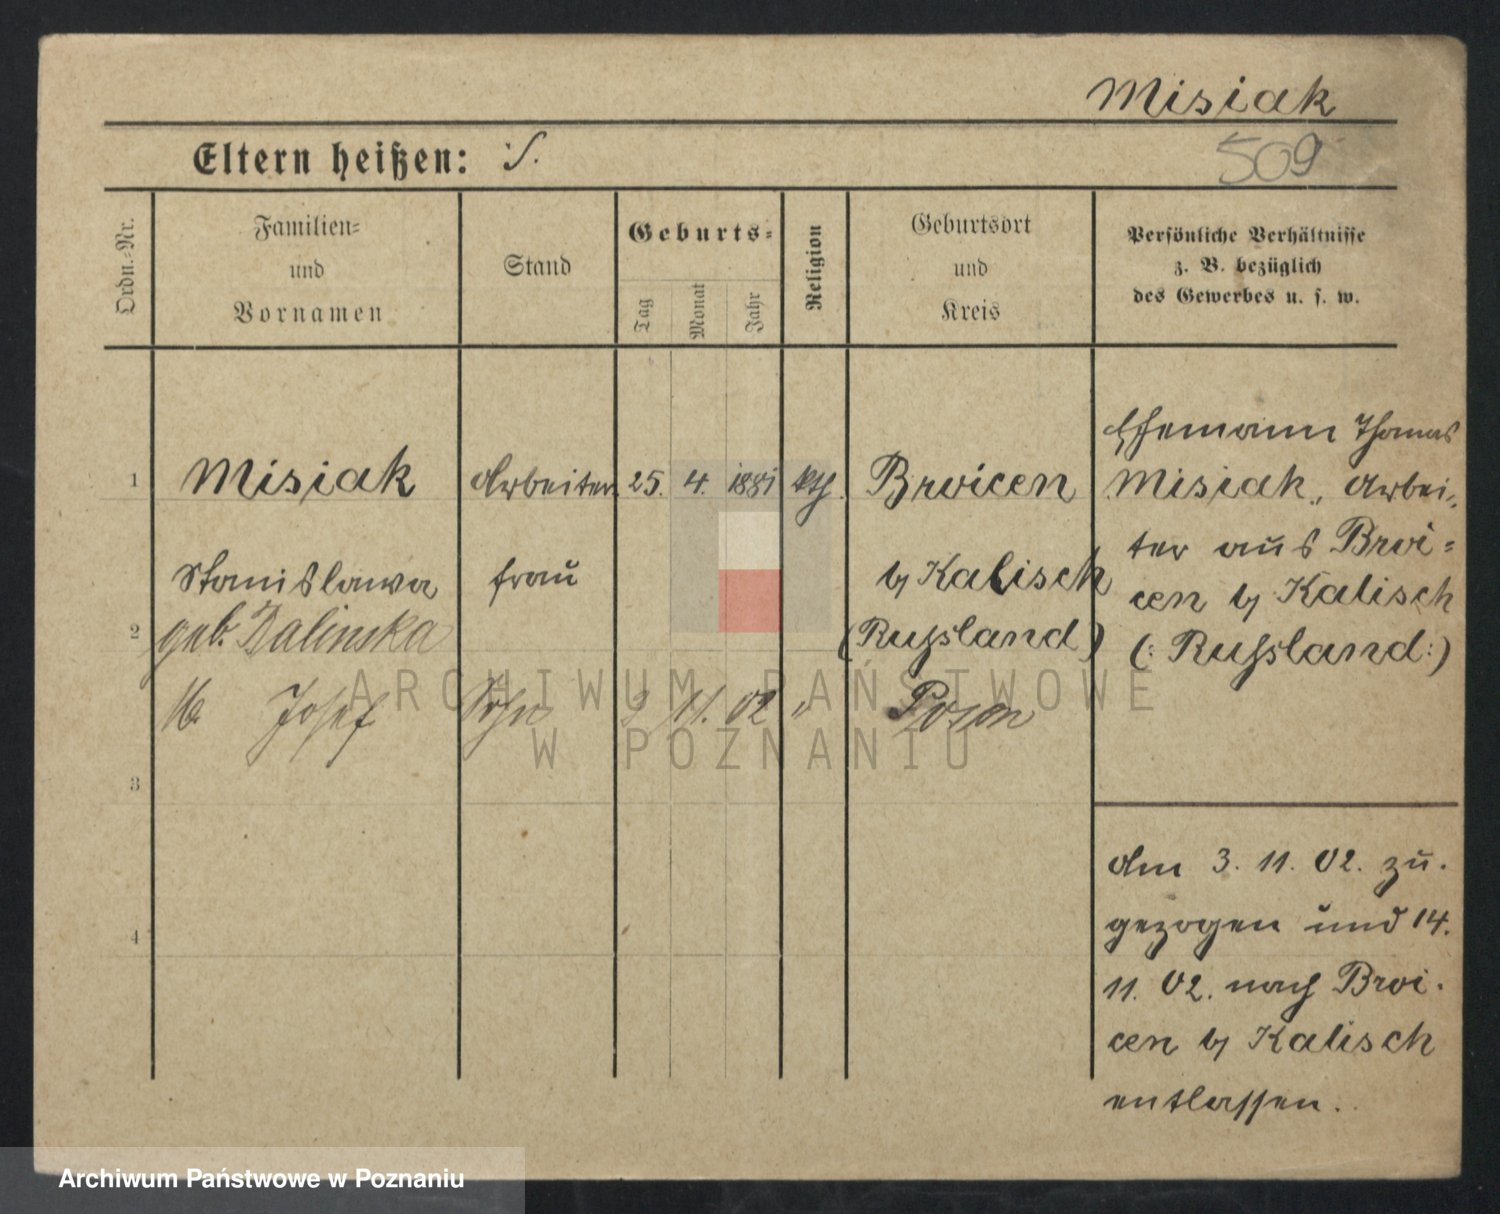 Misiak
509
Eltern heißen:
Ordn.-Nr.
Familien-
und
Vornamen
Stand
Geburts-
Tag
Monat
Jahr
Religion
Geburtsort
und
Kreis
Persönliche Verhältnisse
z. B. bezüglich
des Gewerbes u. s. w.
1
Misiak
Arbeiter
25. 4. 1881
kth.
Brvicen
Stanislawa
frau
b/ Kalisch
2
geb. Dalinska
(Russland)
Josef
Sohn
3 11. 02 "
Posen
3
4
Ehemann Thomas
Misiak, Arbei-
ter aus Brvi=
cen b/ Kalisch
(: Russland:)
Am 3. 11. 02. zu-
gezogen und 14.
11. 02. nach Brvi-
cen b/ Kalisch
entlassen.
ARCHIWUM PAŃSTWOWE
W POZNANIU
Archiwum Państwowe w Poznaniu